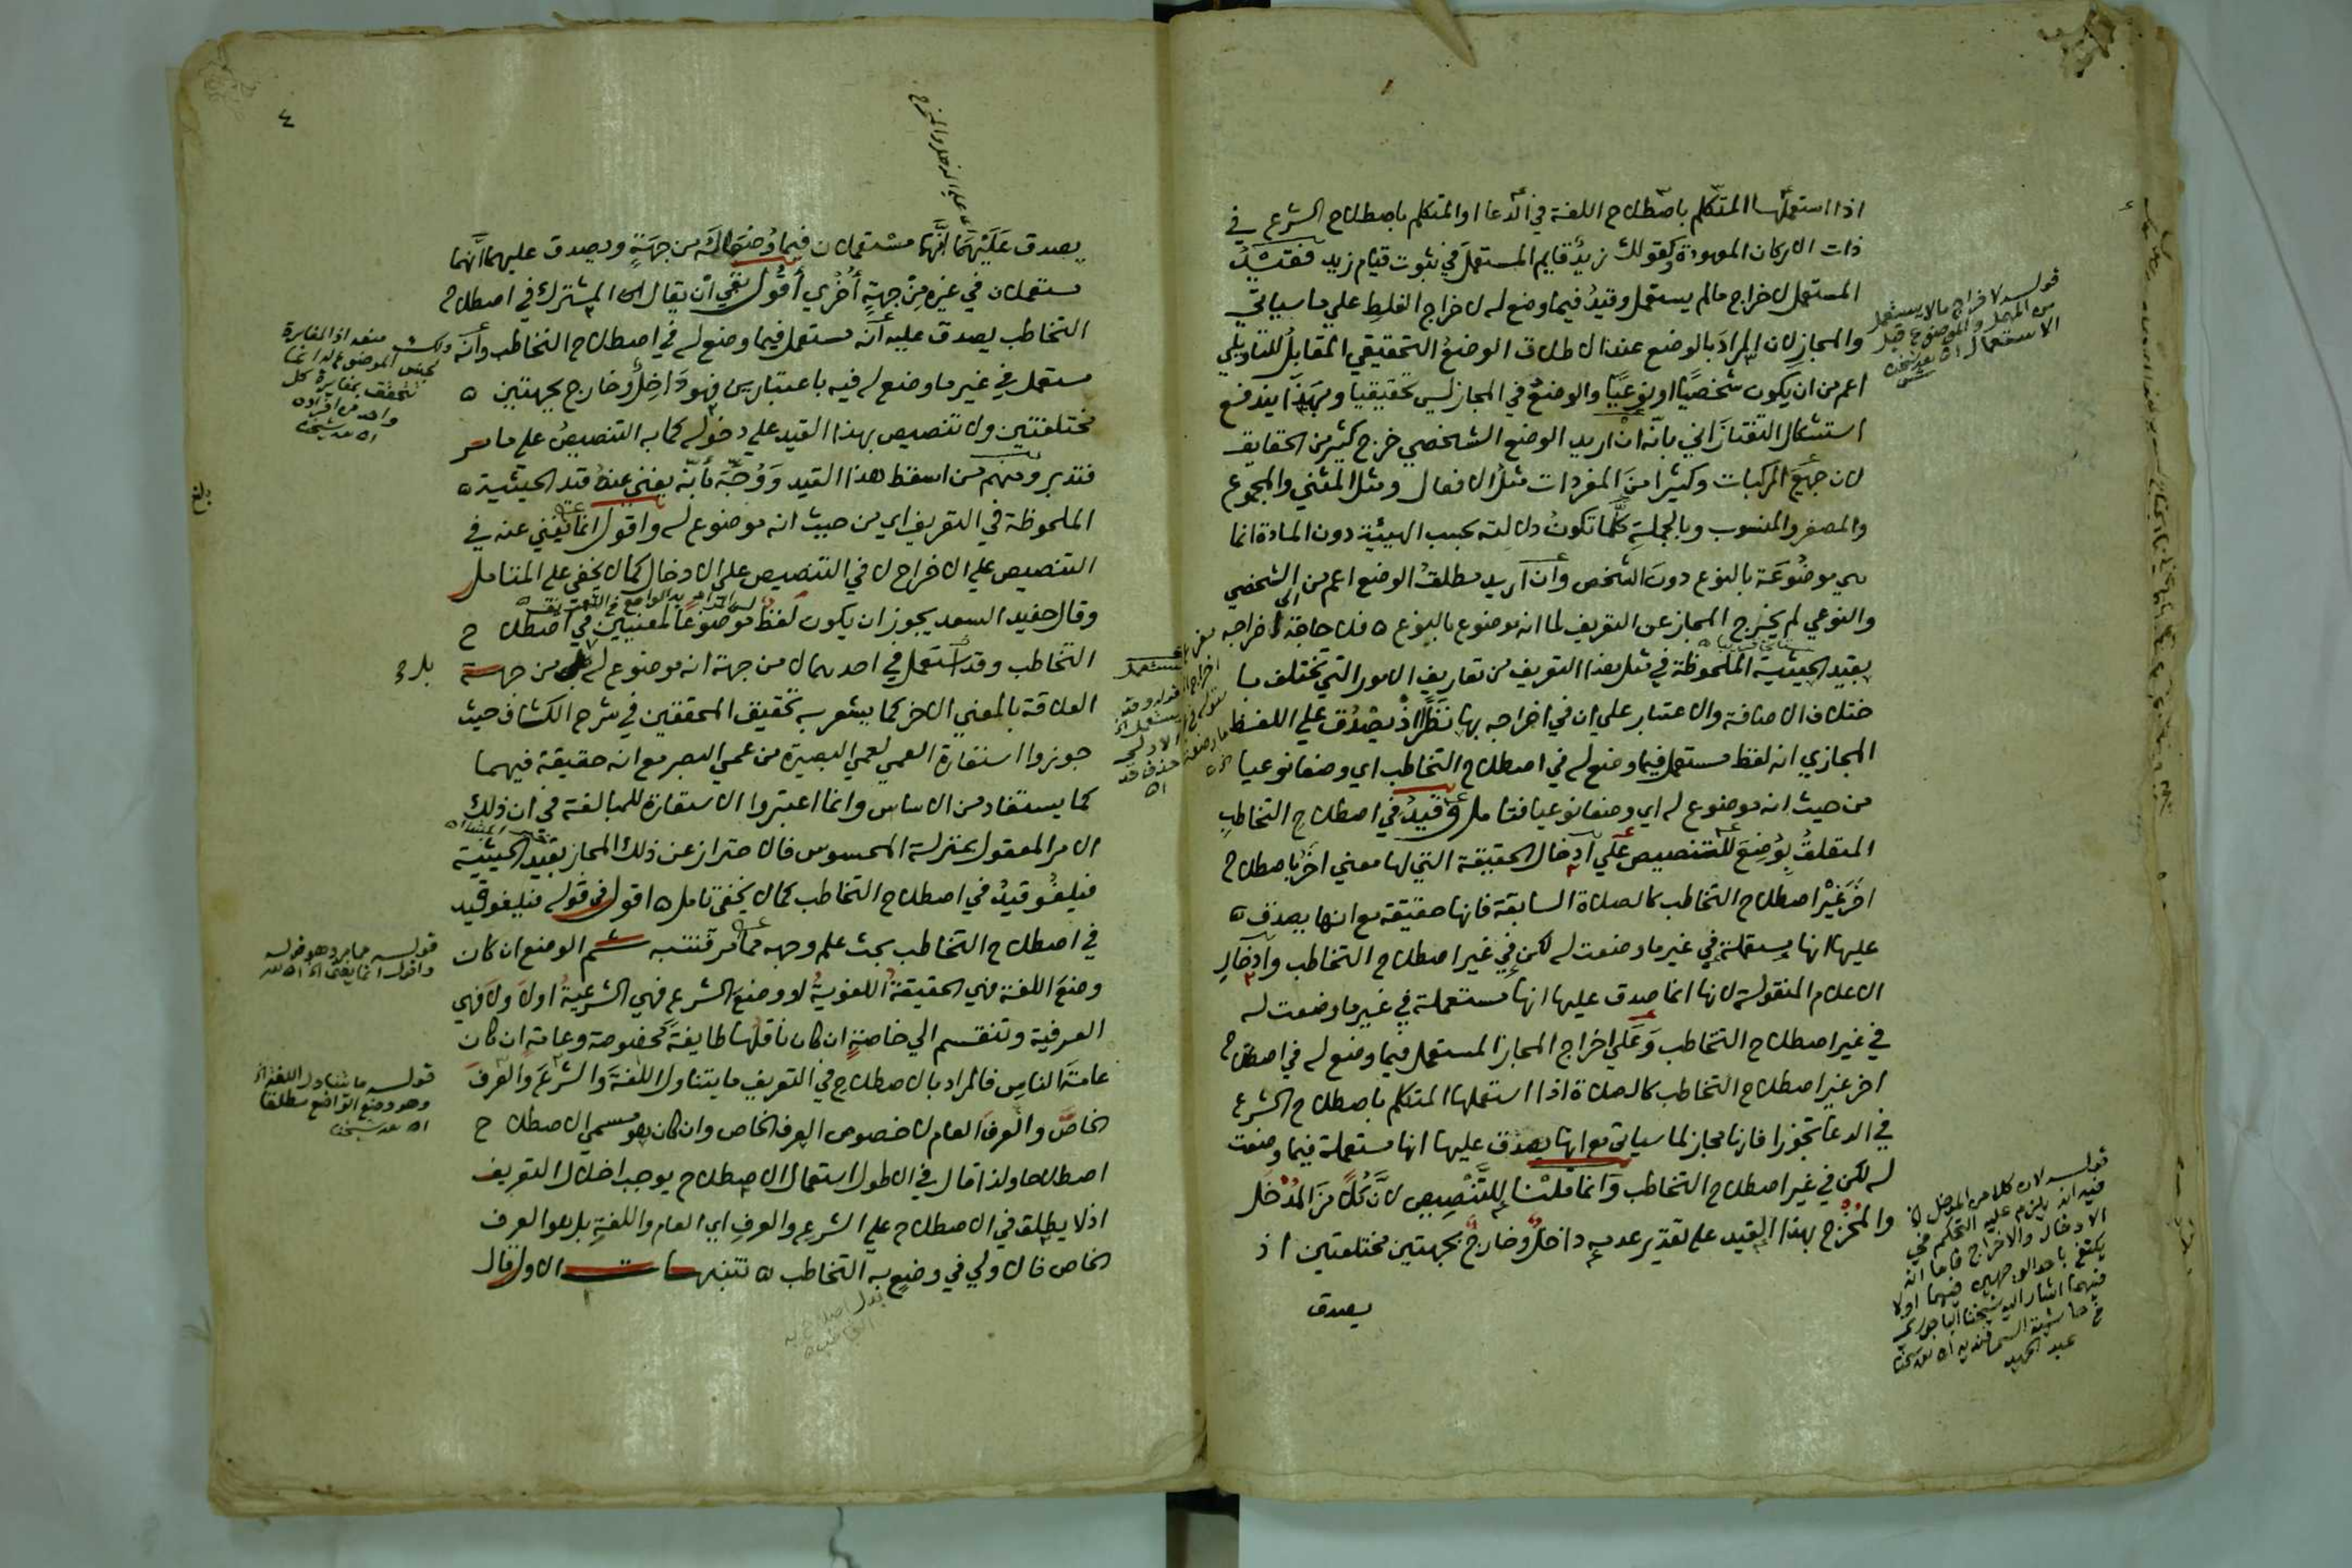 اذا استعملها المتكلم باصطلاح اللغة في الدعا او المتكلم باصطلاح الشرع في
ذات الاركان المعهودة وكقولك زيد قايم المستعمل في ثبوت قيام زيد فقيد
المستعمل لاخراج مالم يستعمل وقيد فيما وضع له لاخراج الغلط علي ما سياتي
والمجاز لان المراد بالوضع عند الاطلاق الوضع التحقيقي المقابل للتاويلي
اعم من ان يكون شخصيا او نوعيا والوضع في المجاز ليس تحقيقيا وبهذا يندفع
استشكال التفتازاني بانه ان اريد الوضع الشخصي خرج كثير من الحقايق
لان جميع المركبات وكثيرا من المفردات مثل الافعال ومثل المثني والمجموع
والمصغر والمنسوب وبالجملة كلما تكون دلالته بحسب الهيئة دون المادة انما
هي موضوعة بالنوع دون الشخص وان اريد مطلق الوضع اعم من الشخصي
والنوعي لم يخرج المجاز عن التعريف لما انه موضوع بالنوع ه فلا حاجة الى اخراجه
بقيد الحيثية الملحوظة في مثل هذا التعريف من تعاريف الامور التي تختلف با
ختلاف الاضافة والاعتبار علي ان في اخراجه بها نظرا اذ يصدق علي اللفظ
المجازي انه لفظ مستعمل فيما وضع له في اصطلاح التخاطب اي وضعا نوعيا
من حيث انه موضوع له اي وضعا نوعيا فتامل وقيد في اصطلاح التخاطب
المتعلق بوضع للتنصيص علي ادخال الحقيقة التي لها معني اخر باصطلاح
اخر غير اصطلاح التخاطب كالصلاة السابقة فانها حقيقة مع انها يصدق ه
عليها انها مستعملة في غير ما وضعت له لكن في غير اصطلاح التخاطب وادخال
الاعلام المنقولة لانها انما صدق عليها انها مستعملة في غير ما وضعت له
في غير اصطلاح التخاطب وعلي اخراج المجاز المستعمل فيما وضع له في اصطلاح
اخر غير اصطلاح التخاطب كالصلاة اذا استعملها المتكلم باصطلاح الشرع
في الدعا تجوزا فانها مجاز لما سياتي مع انها يصدق عليها انها مستعملة فيما وضعت
له لكن في غير اصطلاح التخاطب وانما قلنا للتنصيص لان كلا من المدخل
والمخرج بهذا القيد على تقدير عدمه داخل وخارج بجهتين مختلفتين اذ
يصدق
قوله لاخراج مالا يستعمل
من المهمل والموضوع قبل
الاستعمال اه
قوله لان كلا من المدخل الخ
فيه انه يلزم عليه التحكم في
الادخال والاخراج فاما انه
يكتفي باحد الوجهين فيهما اولا
فيهما اشار اليه شيخنا الباجوري
في حاشية السمرقنديه اه
عبد الحميد
٤
يصدق عليهما انهما مستعملان فيما وضعا له من جهة ويصدق عليهما انهما
مستعملان في غيره من جهة أخري أقول بقي ان يقال ان المشترك في اصطلاح
التخاطب يصدق عليه أنه مستعمل فيما وضع له في اصطلاح التخاطب وأنه
مستعمل في غير ما وضع له فيه باعتبارين فهو داخل وخارج بجهتين ه
مختلفتين ولا تنصيص بهذا القيد علي دخوله كما به التنصيص على ما مر
فتدبر ومنهم من اسقط هذا القيد ووجه بأنه يغني عنه قيد الحيثية ه
الملحوظة في التعريف اي من حيث انه موضوع له واقول انما يغني عنه في
التنصيص علي الاخراج لا في التنصيص علي الادخال كما لا يخفي علي المتامل
وقال حفيد السعد يجوز ان يكون لفظ موضوعا لمعنيين في اصطلاح
التخاطب وقد استعمل في احدهما لا من جهة انه موضوع له بل من جهة
العلاقة بالمعني الاخر كما يشعر به تحقيق المحققين في شرح الكشاف حيث
جوزوا استعارة العمي لعمي البصيرة من عمي البصر مع انه حقيقة فيهما
كما يستفاد من الاساس وانما اعتبروا الاستعارة للمبالغة في ان ذلك
الامر المعقول بمنزلة المحسوس فالاحتراز عن ذلك المجاز بقيد الحيثية
فيلغو قيد في اصطلاح التخاطب كما لا يخفي تامل ه اقول في قوله فيلغو قيد
في اصطلاح التخاطب بحث علم وجهه مما مر فتنبه ثم الوضع ان كان
وضع اللغة فهي الحقيقة اللغوية او وضع الشرع فهي الشرعية اولا ولا فهي
العرفية وتنقسم الي خاصة ان كان ناقلها طايفة مخصوصة وعامة ان كان
عامة الناس فالمراد بالاصطلاح في التعريف ما يتناول اللغة والشرع والعرف
الخاص والعرف العام لا خصوص العرف الخاص وان كان هو مسمي الاصطلاح
اصطلاحا ولذا قال في الاطول استعمال الاصطلاح يوجب اخلال التعريف
اذ لا يطلق في الاصطلاح علي الشرع والعرف اي العام واللغة بل هو العرف
الخاص فالاولي في وضع به التخاطب ه تنبيهات الاول قال
قوله مما مر وهو قوله
واقول انما يغني الخ اه
قوله ما يتناول اللغة الخ
وهو وضع الواضع مطلقا
بلغ